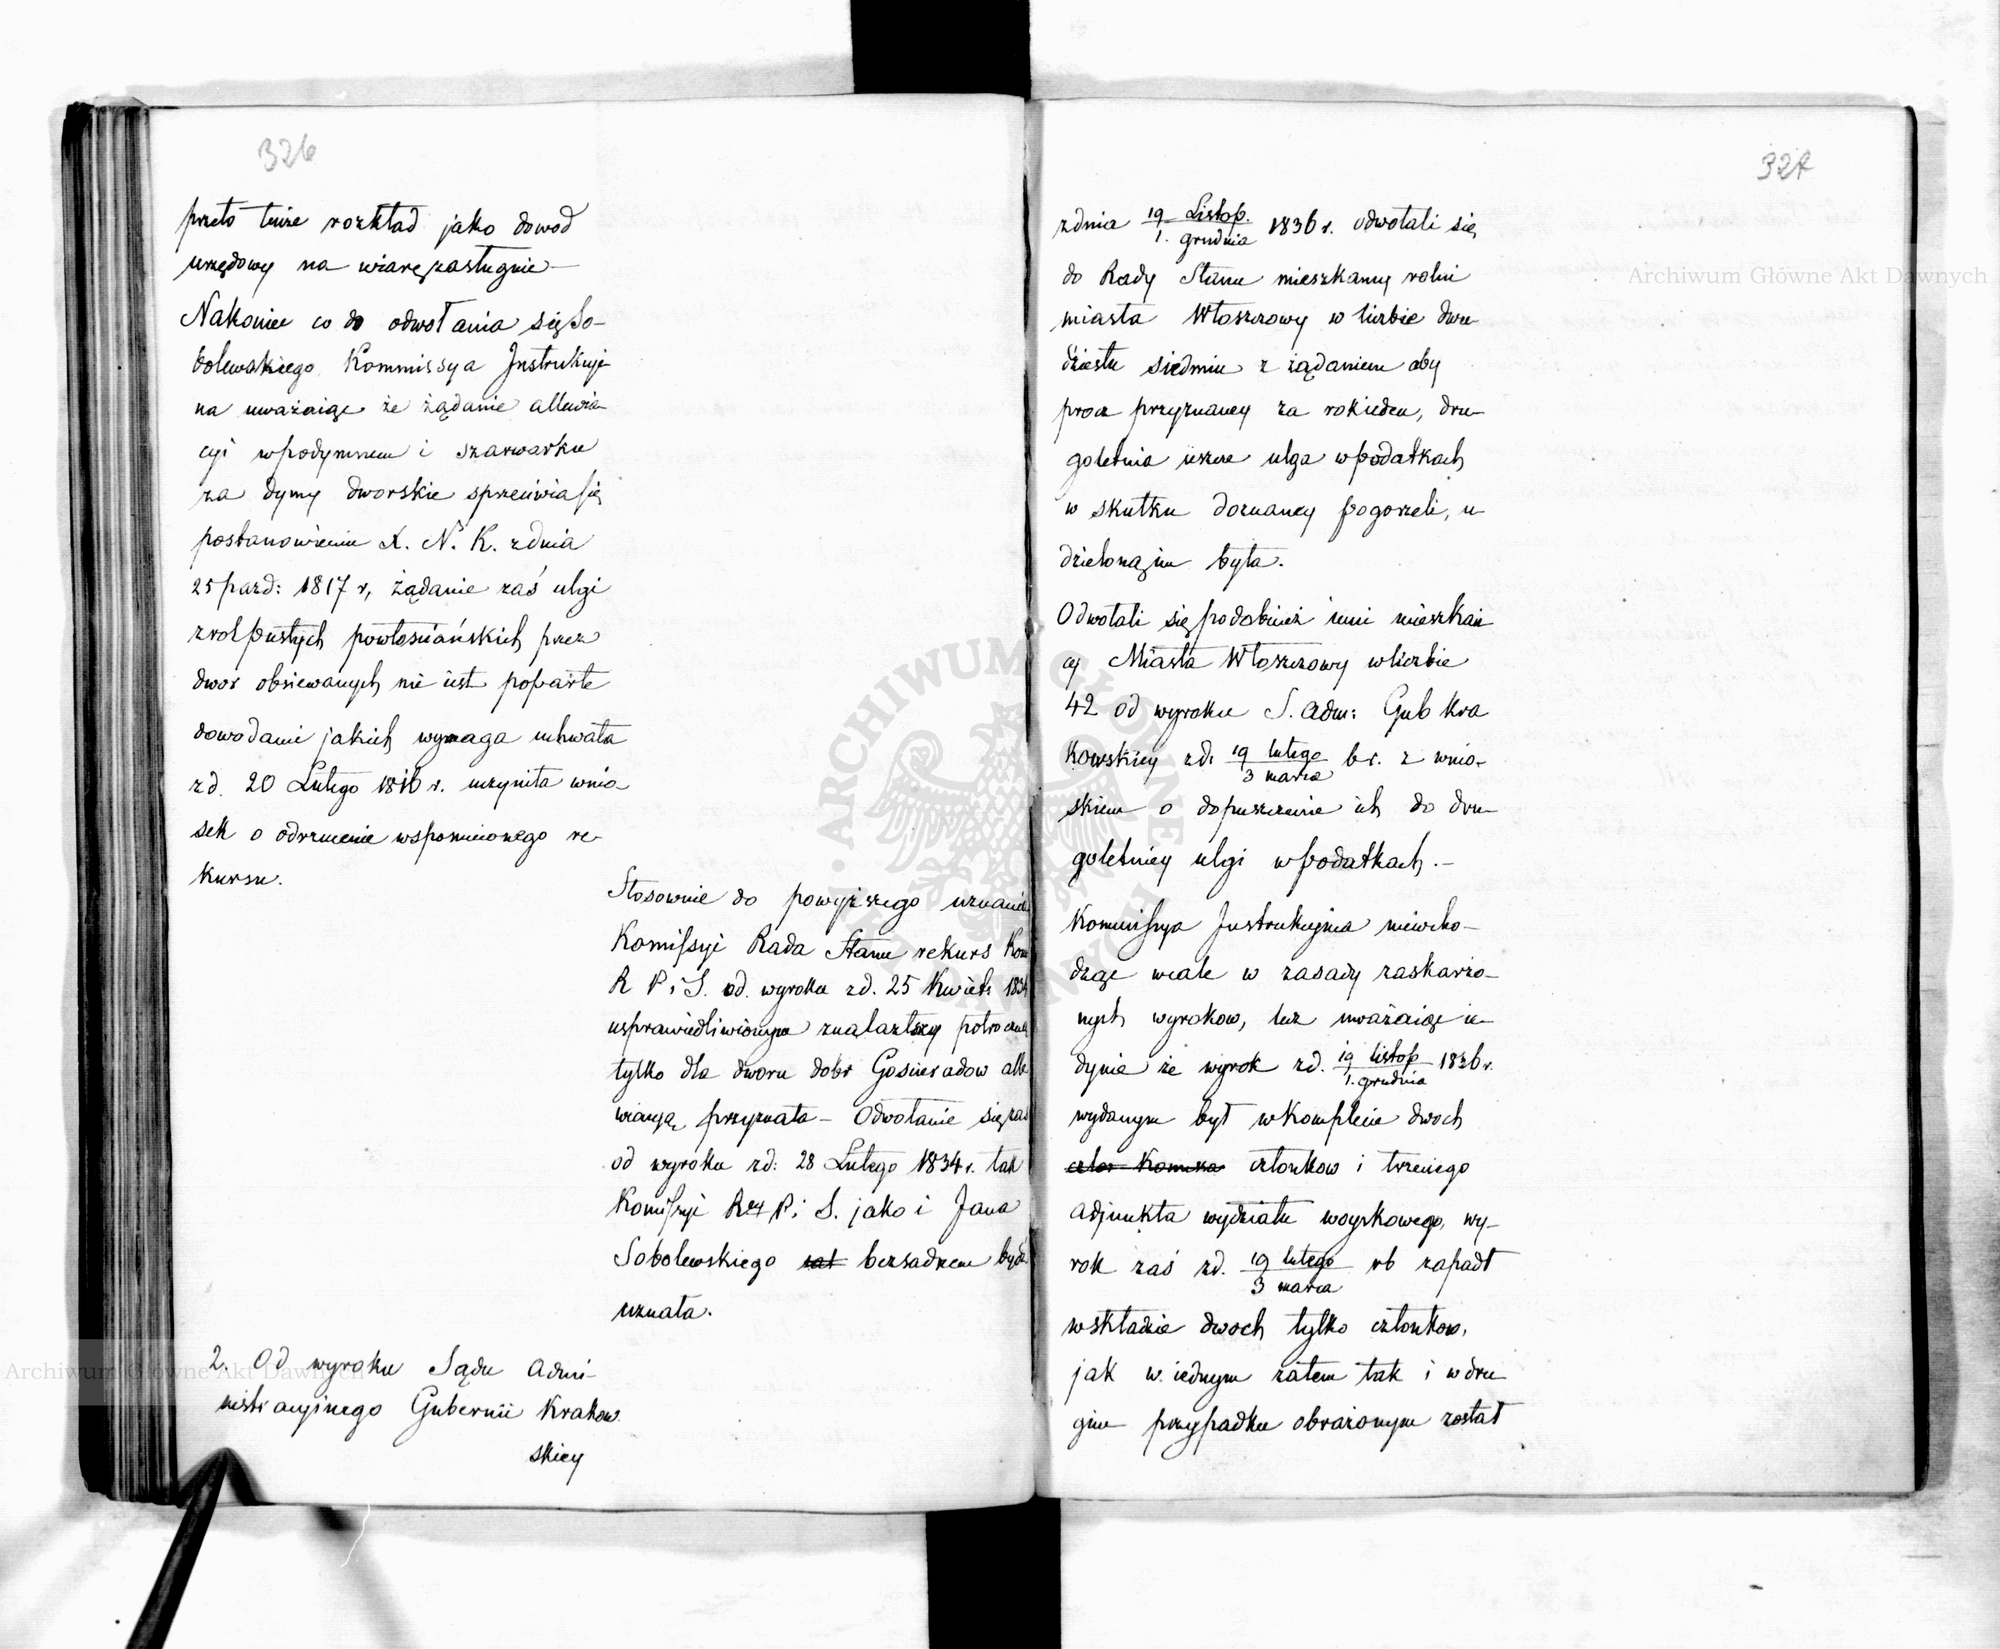 326
przeto tenże rozkład jako dowod
urzędowy na wiarę zasługuie —
Nakoniec co do odwołania się So-
bolewskiego Kommissya Instrukcyi-
na uważaiąc że żądanie allewia-
cyi w podymnem i szarwarku
za dymy dworskie sprzeciwia się
postanowieniu X. N. K. z dnia
25 pazd: 1817 r, żądanie zaś ulgi
z rol pustych powłosciańskich przez
dwor obsiewanych nie iest poparte
dowodami jakich wymaga uchwała
z d. 20 Lutego 1816 r. uczyniła wnio-
sek o odrzucenie wspomnionego re-
kursu.
Stosownie do powyższego uznania
Komissyi Rada Stanu rekurs Kom
R P i S. od. wyroku z d. 25 Kwiet: 1834
usprawiedliwionym znalazłszy potroczną
tylko dla dworu dobr Gosciera­dow alle
wiacyą przyznała — Odwołanie się zaś
od wyroku z d: 28 Lutego 1834 r. tak
Komissyi R P i S. jako i Jana
Sobolewskiego bezsadnem być
uznała.
2. Od wyroku Sądu Admi-
nistracyinego Gubernii Krakow
skiey
327
z dnia 19 Listop. / 1. grudnia 1836 r. odwołali się
do Rady Stanu mieszkancy rolni
miasta Włoszczowy w liczbie dwu-
dziestu siedmiu z żądaniem aby
procz przyznaney za rok ieden, dru-
goletnia ieszcze ulga w podatkach
w skutku doznaney pogorzeli, u
dzieloną im była.
Odwołali się podobnież inni mieszkań
cy Miasta Włoszczowy w liczbie
42 od wyroku S. Adm: Gub Kra
kowskiey z d: 19 lutego / 3 marca b r. z wnio-
skiem o dopuszczenie ich do dru-
goletniey ulgi w podatkach. —
Kommissya Instrukcyina niewcho-
dząc wcale w zasady zaskarżo-
nych wyrokow, lecz uważaiąc ie-
dynie że wyrok z d. 19 listop / 1. grudnia 1836 r.
wydanym był w Komplecie dwoch
członkow i trzeciego
adjunkta wydziału woyskowego, wy-
rok zaś z d. 19 lutego / 3 marca r b zapadł
w składzie dwoch tylko członkow,
jak w iednym zatem tak i w dru
gim przypadku obrażonym został
Archiwum Główne Akt Dawnych
Archiwum Główne Akt Dawnych